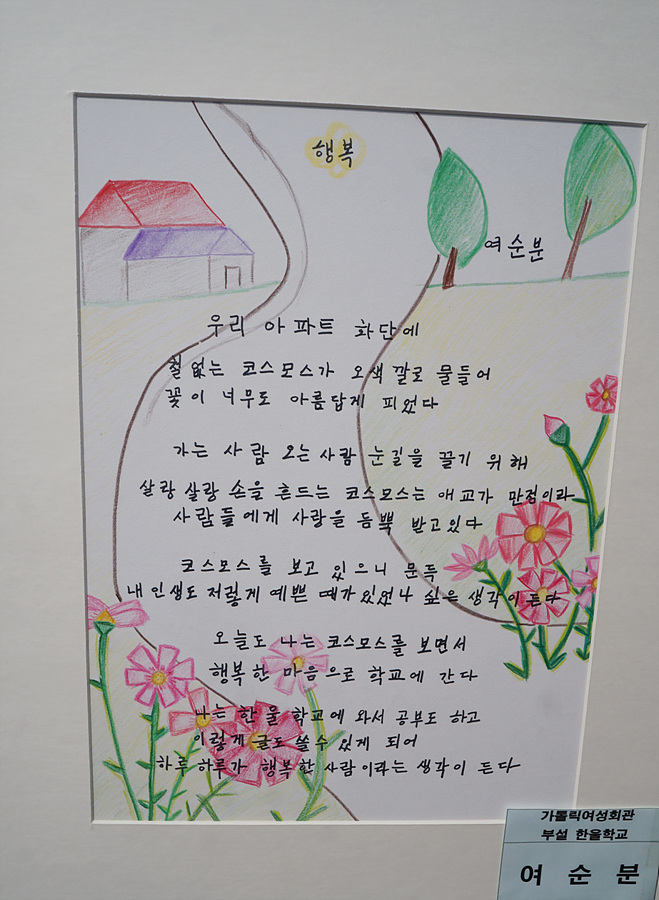 행복
여순분
우리 아파트 화단에
쉴 없는 코스모스가 오색깔로 물들어
꽃이 너무도 아름답게 피었다
가는 사람 오는 사람 눈길을 끌기 위해
살랑 살랑 손을 흔드는 코스모스는 애교가 만점이라
사람들에게 사랑을 듬뿍 받고있다
코스모스를 보고 있으니 문득
내 인생도 저렇게 예쁜 때가 있었나 싶은 생각이 든다
오늘도 나는 코스모스를 보면서
행복한 마음으로 학교에 간다
나는 한울학교에 와서 공부도 하고
이렇게 글도 쓸수 있게 되어
하루 하루가 행복한 사람이라는 생각이 든다
가톨릭여성회관
부설 한울학교
여 순 분